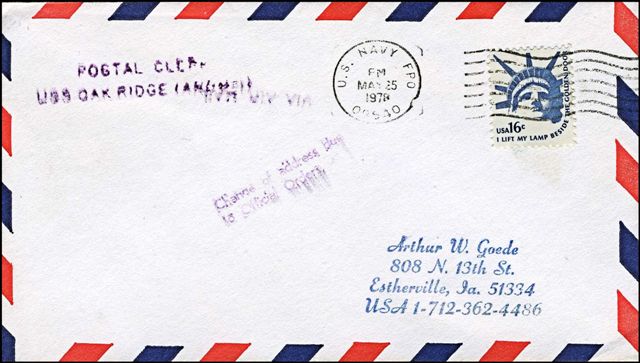 POSTAL CLERK
USS OAK RIDGE (ARDM-1)
VIA AIR MAIL
U.S. NAVY FPO
PM
MAY 25
1978
09540
USA 16c
I LIFT MY LAMP BESIDE THE GOLDEN DOOR
Change of address Due
to Official Orders
Arthur W. Goede
808 N. 13th St.
Estherville, Ia. 51334
USA 1-712-362-4486